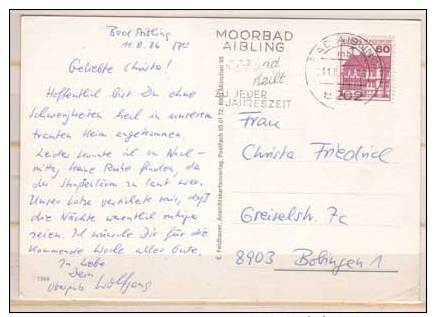 Bad Aibling
11.8.86
Geliebte Christa!
Hoffentlich bist Du ohne
Schwierigkeiten heil in unserem
trauten Heim angekommen.
Leider konnte ich zu Nach-
mittag keine Ruhe finden, da
der Straßenlärm zu laut war.
Unser Lotse versicherte mir, daß
die Nächte wesentlich ruhiger
seien. Ich wünsche Dir für die
kommende Woche alles Gute.
In Liebe
Dein
Wolfgang
1366
E. Feldbauer, Ansichtskartenverlag, Postfach 95 01 72, 8000 München 95
MOORBAD
AIBLING
heilt
ZU JEDER
JAHRESZEIT
BAD AIBLING
8202
60
Frau
Christa Friedrich
Greiselstr. 7c
8903 Bobingen 1